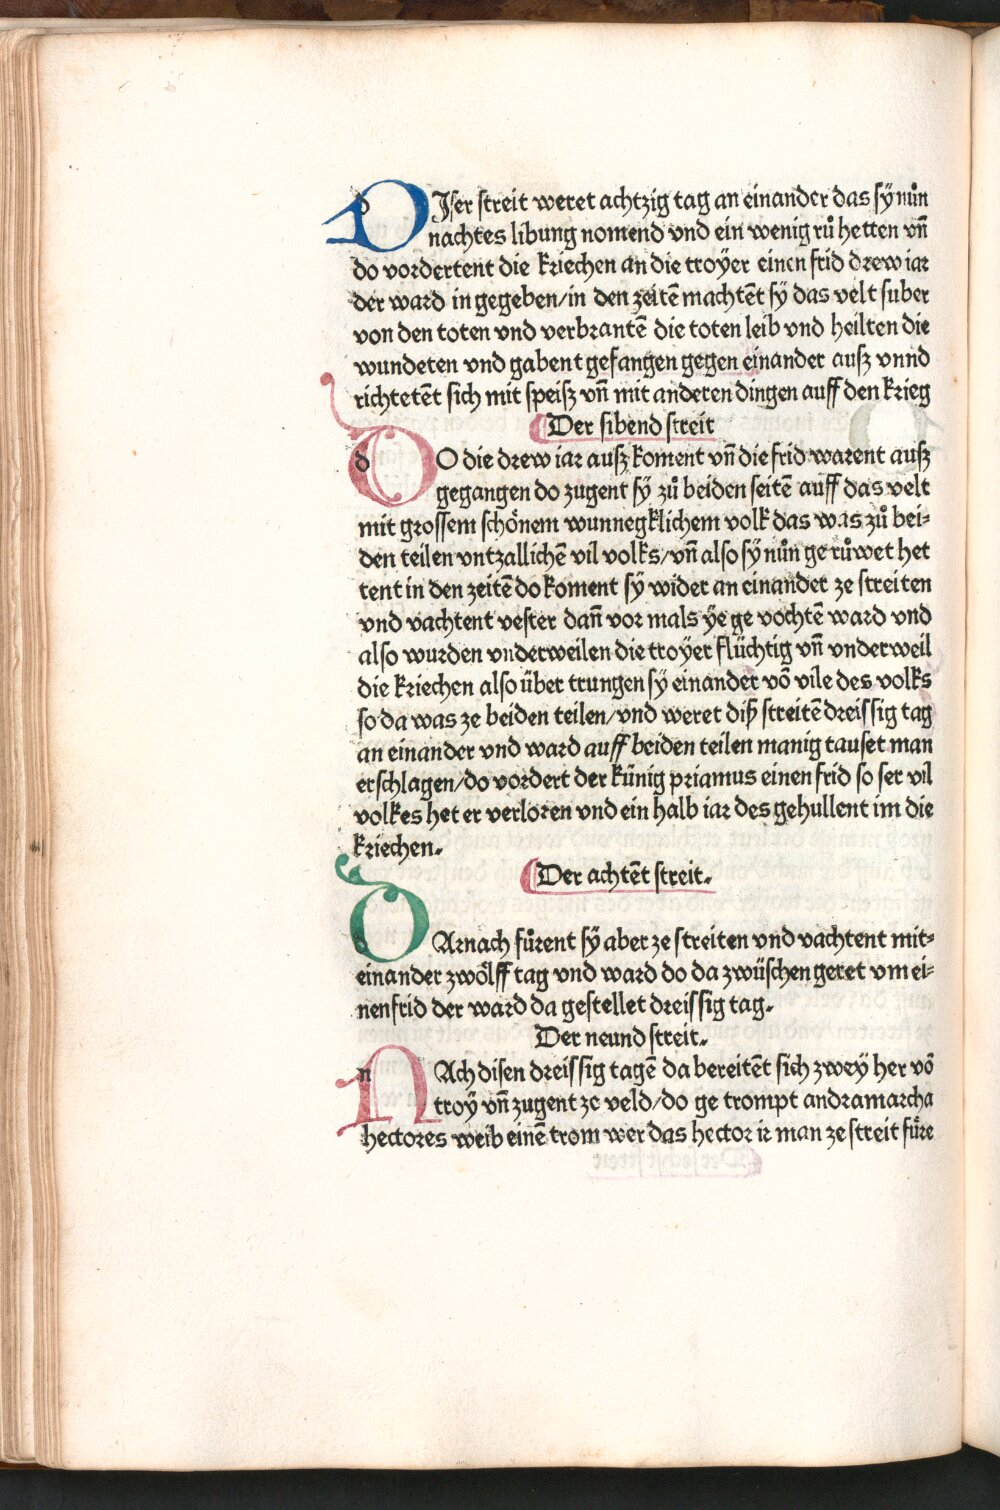 DIser streit weret achtzig tag an einander das sÿ nůn
nachtes libung nomend vnd ein wenig rů hetten vn̄
do vordertent die kriechen an die troÿer einen frid drew iar
der ward in gegeben/in den zeitē machtēt sÿ das velt suber
von den toten vnd verbrantē die toten leib vnd heilten die
wundeten vnd gabent gefangen gegen einander ausz vnnd
richtetēt sich mit speisz vn̄ mit anderen dingen auff den krieg
Der sibend streit
DO die drew iar ausz koment vn̄ die frid warent ausz
gegangen do zugent sÿ zů beiden seitē auff das velt
mit grossem schönem wunnegklichem volk das was zů bei⸗
den teilen vntzallichē vil volks/vn̄ also sÿ nůn ge růwet het
tent in den zeitē do koment sÿ wider an einander ze streiten
vnd vachtent vester dan̄ vor mals ÿe ge vochtē ward vnd
also wurden vnderweilen die troÿer flüchtig vn̄ vnderweil
die kriechen also über trungen sÿ einander vō vile des volks
so da was ze beiden teilen/vnd weret diß streitē dreissig tag
an einander vnd ward auff beiden teilen manig tauset man
erschlagen/do vordert der künig priamus einen frid so ser vil
volkes het er verloren vnd ein halb iar des gehullent im die
kriechen.
Der achtēt streit.
DArnach fůrent sÿ aber ze streiten vnd vachtent mit⸗
einander zwölff tag vnd ward do da zwüschen geret vm ei⸗
nen frid der ward da gestellet dreissig tag.
Der neund streit.
NAch disen dreissig tagē da bereitēt sich zweÿ her vō
troÿ vn̄ zugent ze veld/do ge trompt andramarcha
hectores weib einē trom wer das hector ir man ze streit fůre